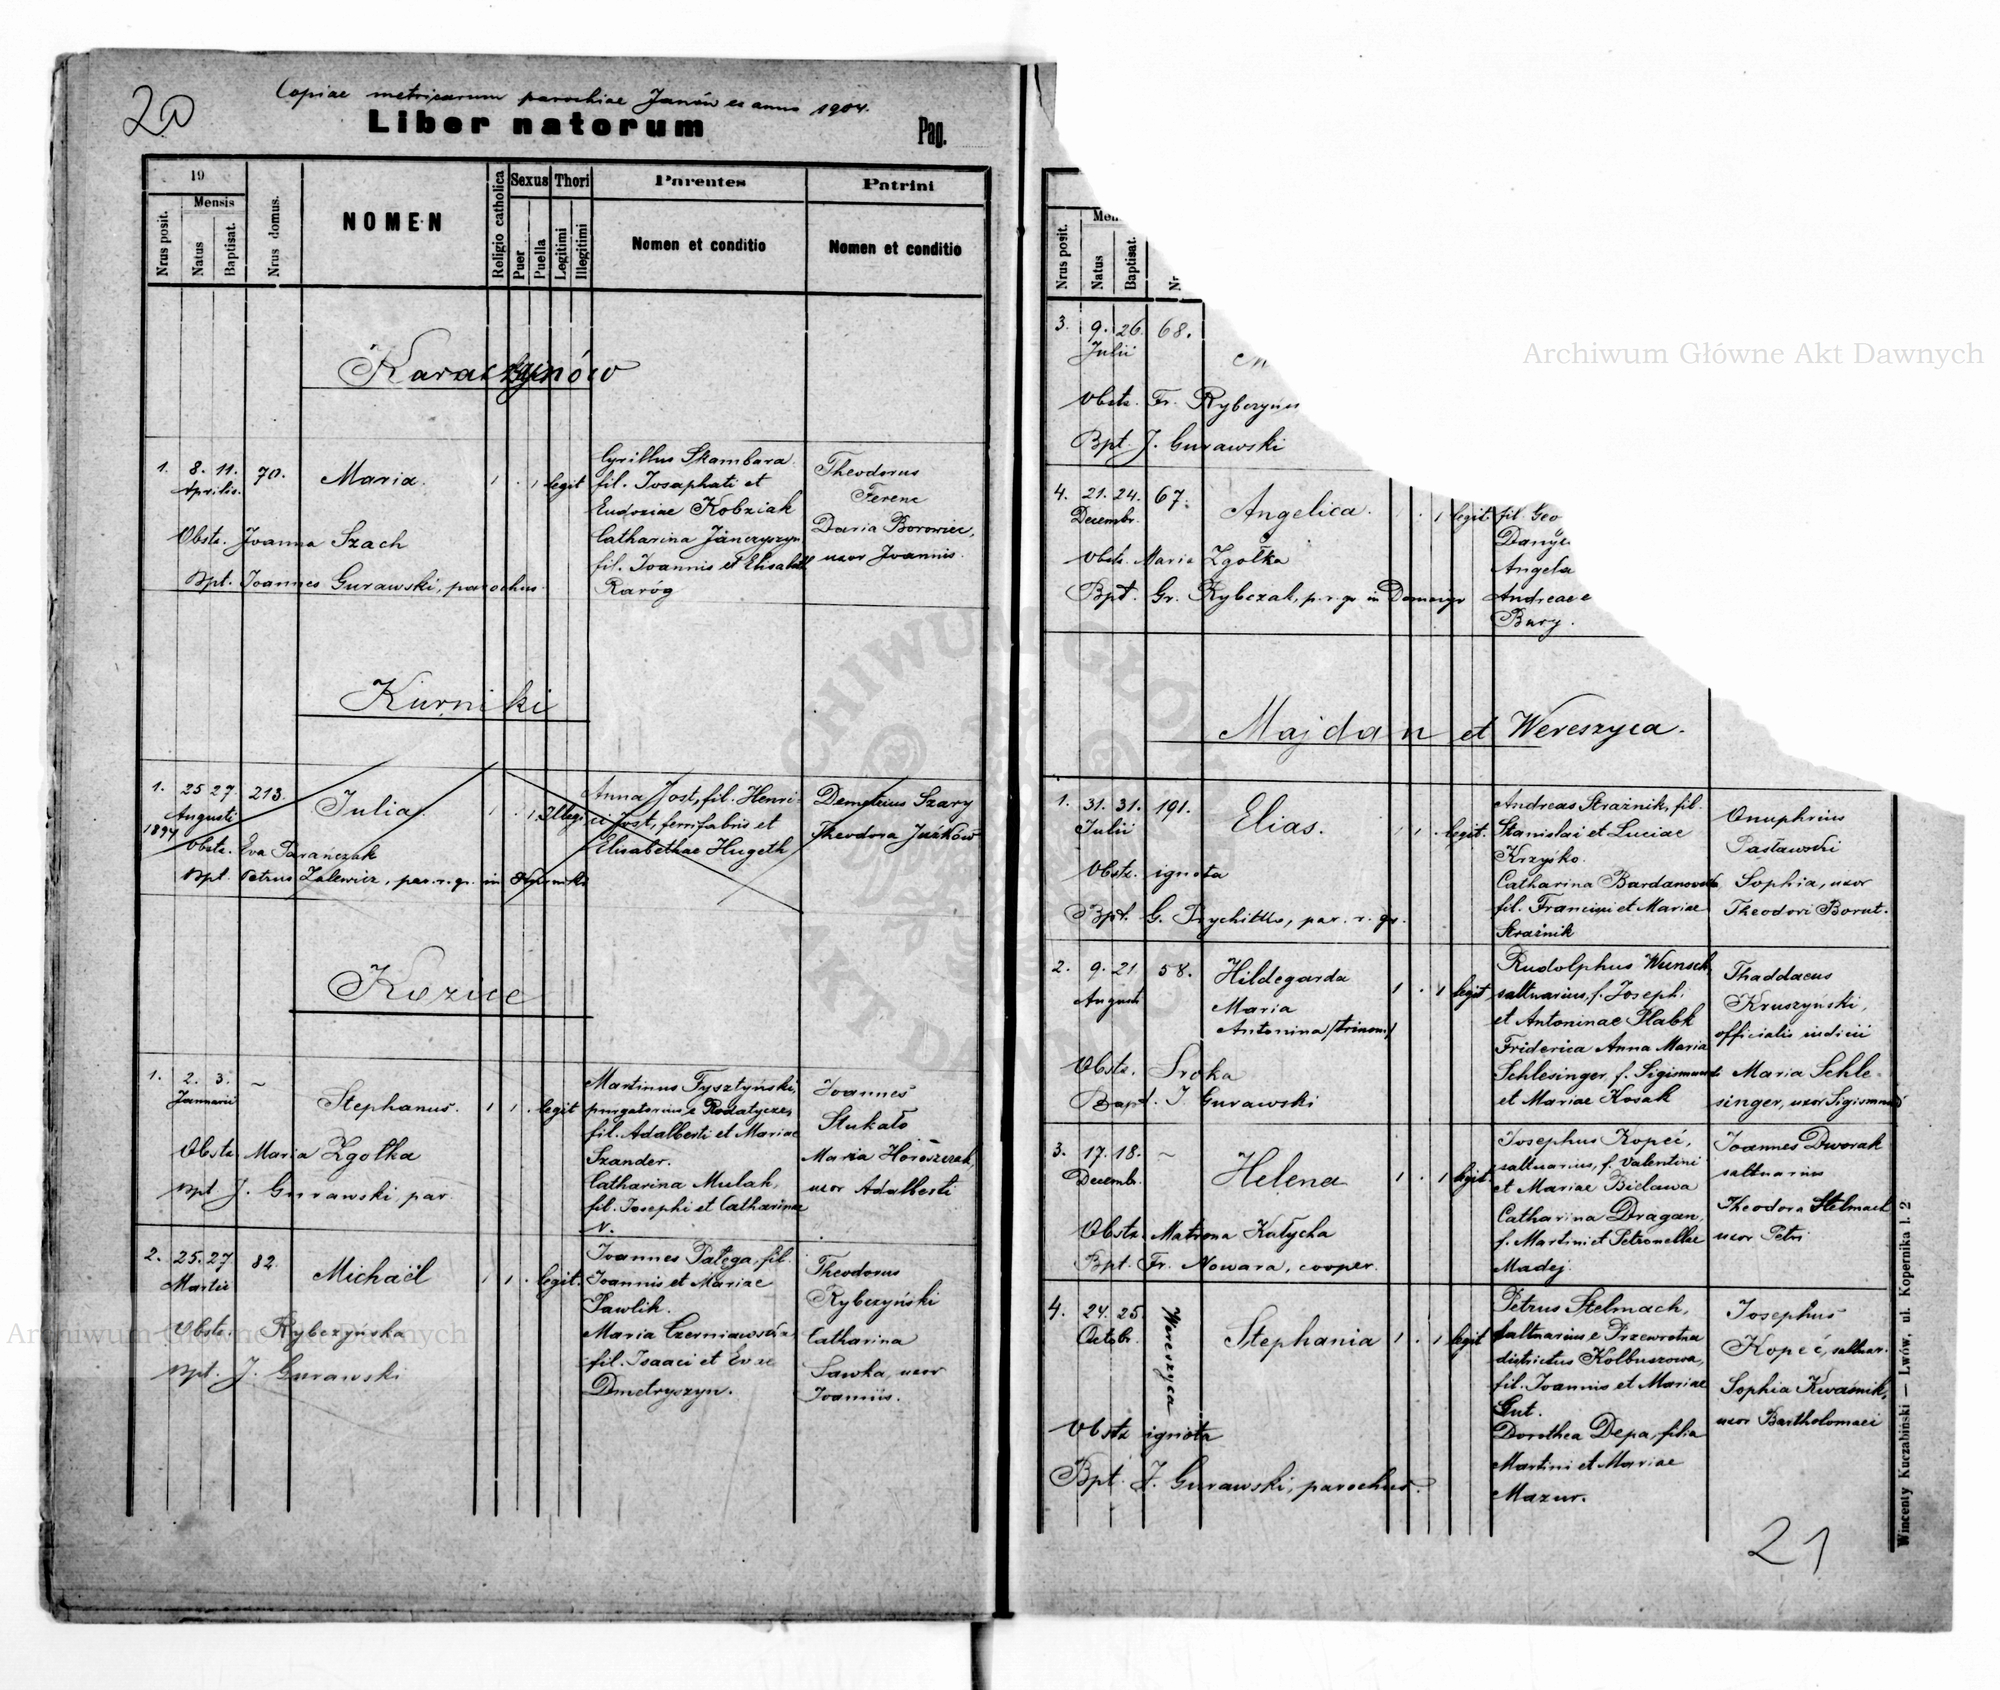 20
Copiae metricarum parochiae Janów ex anno 1904.
Liber natorum
Pag.
19
Mensis
Nrus posit.
Natus
Baptisat.
Nrus domus.
NOMEN
Religio catholica
Sexus
Puer
Puella
Thori
Legitimi
Illegitimi
Parentes
Nomen et conditio
Patrini
Nomen et conditio
1. 8. 11. 70. Maria. 1 . 1 legit
Aprilis.
Cyrillus Skambara
fil. Josaphati et
Eudoxiae Kobziak
Catharina Janczyszyn
fil. Joannis et Elisabeth
Raróg
Theodorus
Ferenc
Daria Borowiec,
uxor Joannis.
Obste. Joanna Szach
Bpt. Joannes Gurawski, parochus.
Kurniki
1. 25 27. 213. Julia. 1 . 1 Illegi
Augusti
1894
Anna Jost, fil. Henri
ci Jost, ferrifabris et
Elisabethae Hugeth
Demetrius Szary
Theodora Juzków
Obste. Eva Parańczak
Bpt. Petrus Zalewicz, par. r. gr. in
Kozice
1. 2. 3. ~ Stephanus. 1 1 . legit
Januarii
Martinus Tysztyński,
purgatorius e Rodatycze,
fil. Adalberti et Mariae
Szander.
Catharina Mulak,
fil. Josephi et Catharinae
N.
Joannes
Stukało
Maria Horoszczak,
uxor Adalberti
Obste. Maria Zgołka
Bpt J. Gurawski, par.
2. 25. 27 82. Michaël 1 1 . legit.
Martii
Joannes Patęga, fil.
Joannis et Mariae
Pawlik.
Maria Czerniawska,
fil. Isaaci et Evae
Dmetryszyn.
Theodorus
Rybczyński
Catharina
Sawka, uxor
Joannis.
Obste. Rybczyńska
Bpt. J. Gurawski
Nrus posit.
Natus
Baptisat.
3. 9. 26. 68.
Julii
Obste. Fr. Rybczyńs
Bpt. J. Gurawski
4. 21. 24. 67. Angelica. 1 . 1 legit
Decembr.
fil. Geo
Angela
Andreae e
Bury.
Obste. Maria Zgołka
Bpt. Gr. Rybczak, p. r. gr in
Majdan et Wereszyca.
1. 31. 31. 191. Elias. 1 1 . legit.
Julii
Andreas Strażnik, fil.
Stanislai et Luciae
Krzyśko.
Catharina Bardanowska,
fil. Francisci et Mariae
Strażnik
Onuphrius
Pasławski
Sophia, uxor
Theodori Borut.
Obste. ignota
Bpt. G. Prychitko, par. r. gr.
2. 9. 21. 58. Hildegarda 1 . 1 legit.
Augusti
Maria
Antonina /trinom/
Rudolphus Wunsch,
saltuarius, f. Joseph.
et Antoninae Plabk
Friderica Anna Maria
Schlesinger, f. Sigismundi
et Mariae Kosak
Thaddaeus
Kruszyński,
officialis iudicii
Maria Schle-
singer, uxor Sigismundi
Obste. Sroka
Bapt. J. Gurawski
3. 17. 18. ~ Helena 1 . 1 legit.
Decembr.
Josephus Kopeć,
saltuarius, f. Valentini
et Mariae Bielawa
Catharina Dragan,
f. Martini et Petronellae
Madej.
Joannes Dworak
saltuarius
Theodora Stelmach
uxor Petri
Obste. Matrona Kałycha
Bpt. Fr. Nowara, cooper.
4. 24. 25. Wereszyca Stephania 1 . 1 legit
Octobr.
Petrus Stelmach,
saltuarius e Przewrotna
districtus Kolbuszowa,
fil. Joannis et Mariae
Gut.
Dorothea Depa, filia
Martini et Mariae
Mazur.
Josephus
Kopeć, saltuar.
Sophia Kwaśnik,
uxor Bartholomaei
Obste ignota
Bpt. J. Gurawski, parochus.
21
Wincenty Kuczabiński — Lwów, ul. Kopernika l. 2
Archiwum Główne Akt Dawnych
Archiwum Główne Akt Dawnych
ARCHIWUM GŁÓWNE
AKT DAWNYCH